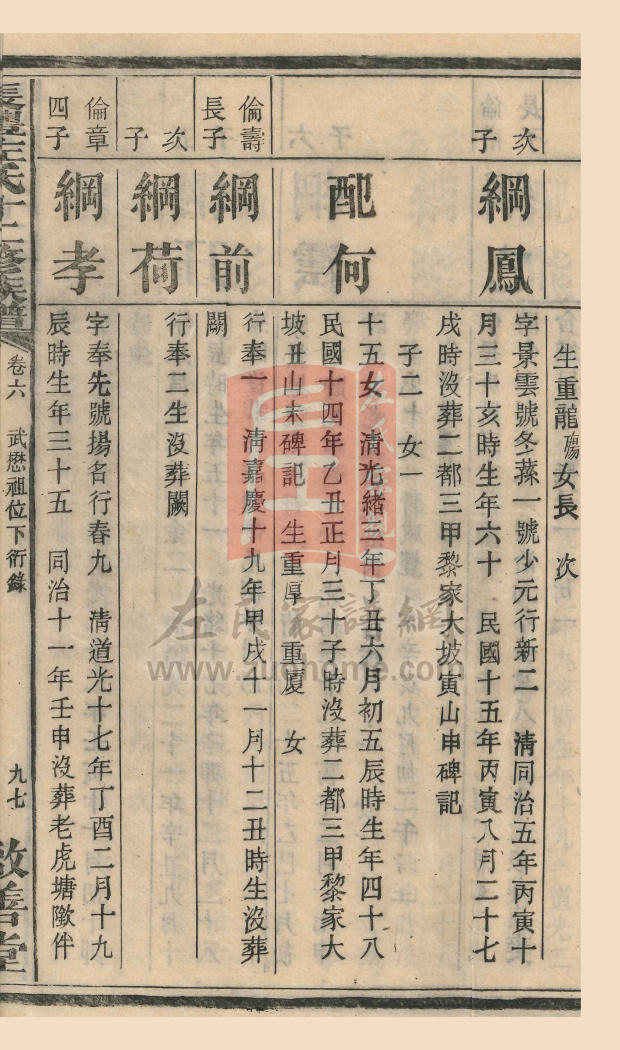 生重龍殤 女長 次
次子
綱鳳
字景雲號冬蓀一號少元行新二 清同治五年丙寅十
月三十亥時生年六十 民國十五年丙寅八月二十七
戌時沒葬二都三甲黎家大坡寅山申碑記
子二十 女一
配何
十五女 清光緒三年丁丑六月初五辰時生年四十八
民國十四年乙丑正月三十子時沒葬二都三甲黎家大
坡丑山未碑記 生重厚 重廈 女
倫壽長子
綱前
行奉一 清嘉慶十九年甲戌十一月十二丑時生沒葬
闕
次子
綱荷
行奉二生沒葬闕
倫章四子
綱孝
字奉先號揚名行春九 清道光十七年丁酉二月十九
辰時生年三十五 同治十一年壬申沒葬老虎塘墩伴
長豐左氏十二修族譜 卷六 武懋祖位下衍錄 九七 敦善堂
左氏家譜網
www.zuohome.com